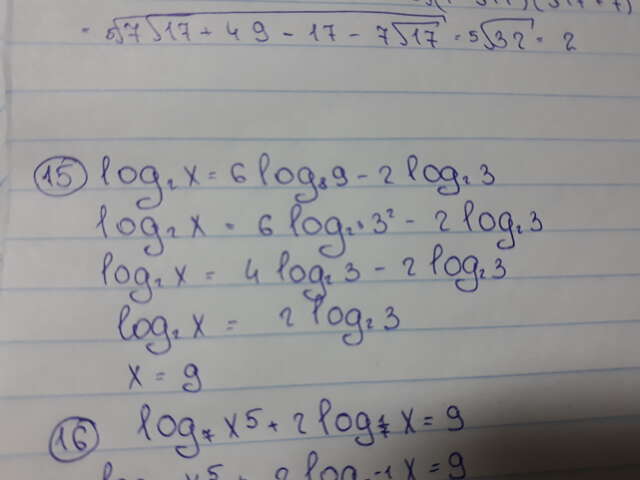 = ⁵√(7√17 + 49 - 17 - 7√17) = ⁵√32 = 2
15 log₂ x = 6 log₈ 9 - 2 log₂ 3
log₂ x = 6 log₂³ 3² - 2 log₂ 3
log₂ x = 4 log₂ 3 - 2 log₂ 3
log₂ x = 2 log₂ 3
x = 9
16 log₇ x⁵ + 2 log₇ x = 9
x = 9